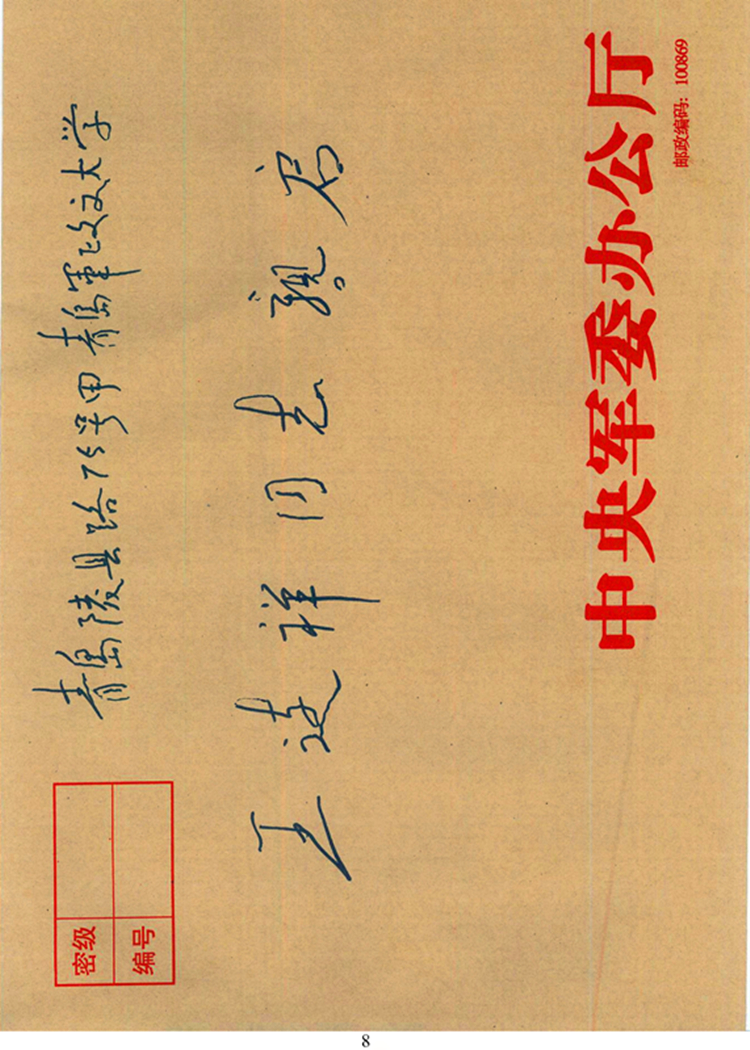 密级
编号
青島陵县路75号甲青島軍政文大学
王祥同志親启
中央军委办公厅
邮政编码：100869
8